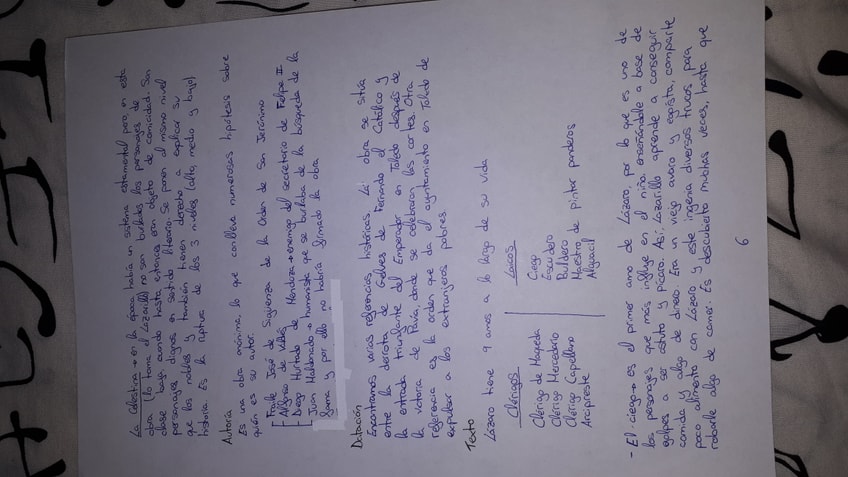 La Celestina → en la época había un sistema estamental pero, en esta
obra (lo toma el Lazarillo) no son burlados los personajes de
clase baja, cuando hasta entonces eran objeto de comicidad. Son
personajes dignos en sentido literario. Se ponen al mismo nivel
que los nobles y también tienen derecho a explicar su
historia. Es la ruptura de los 3 niveles (alto, medio y bajo)
Autoría
Es una obra anónima, lo que conlleva numerosas hipótesis sobre
quién es su autor.
Fraile José de Sigüenza de la Orden de San Jerónimo
Alfonso de Valdés
Diego Hurtado de Mendoza → enemigo del secretario de Felipe II
Juan Maldonado → humanista que se burlaba de la búsqueda de la
fama y por ello no habría firmado la obra
Datación
Encontramos varias referencias históricas. La obra se sitúa
entre la derrota de Gelves de Fernando el Católico y
la entrada triunfante del Emperador en Toledo después de
la victoria de Pavía, donde se celebraron las cortes. Otra
referencia es la orden que da el ayuntamiento en Toledo de
expulsar a los extranjeros pobres.
Texto
Lázaro tiene 9 amos a lo largo de su vida
Clérigos Laicos
Clérigo de Maqueda Ciego
Clérigo Mercedario Escudero
Clérigo Capellano Buldero
Arcipreste Maestro de pintar panderos
Alguacil
- El ciego → es el primer amo de Lázaro, por lo que es uno de
los personajes que más influye en el niño, enseñándole a base de
golpes a ser astuto y pícaro. Así, Lazarillo aprende a conseguir
comida y algo de dinero. Era un viejo avaro y egoísta, comparte
poco alimento con Lázaro y este ingenia diversos trucos para
robarle algo de comer. Es descubierto muchas veces, hasta que
6